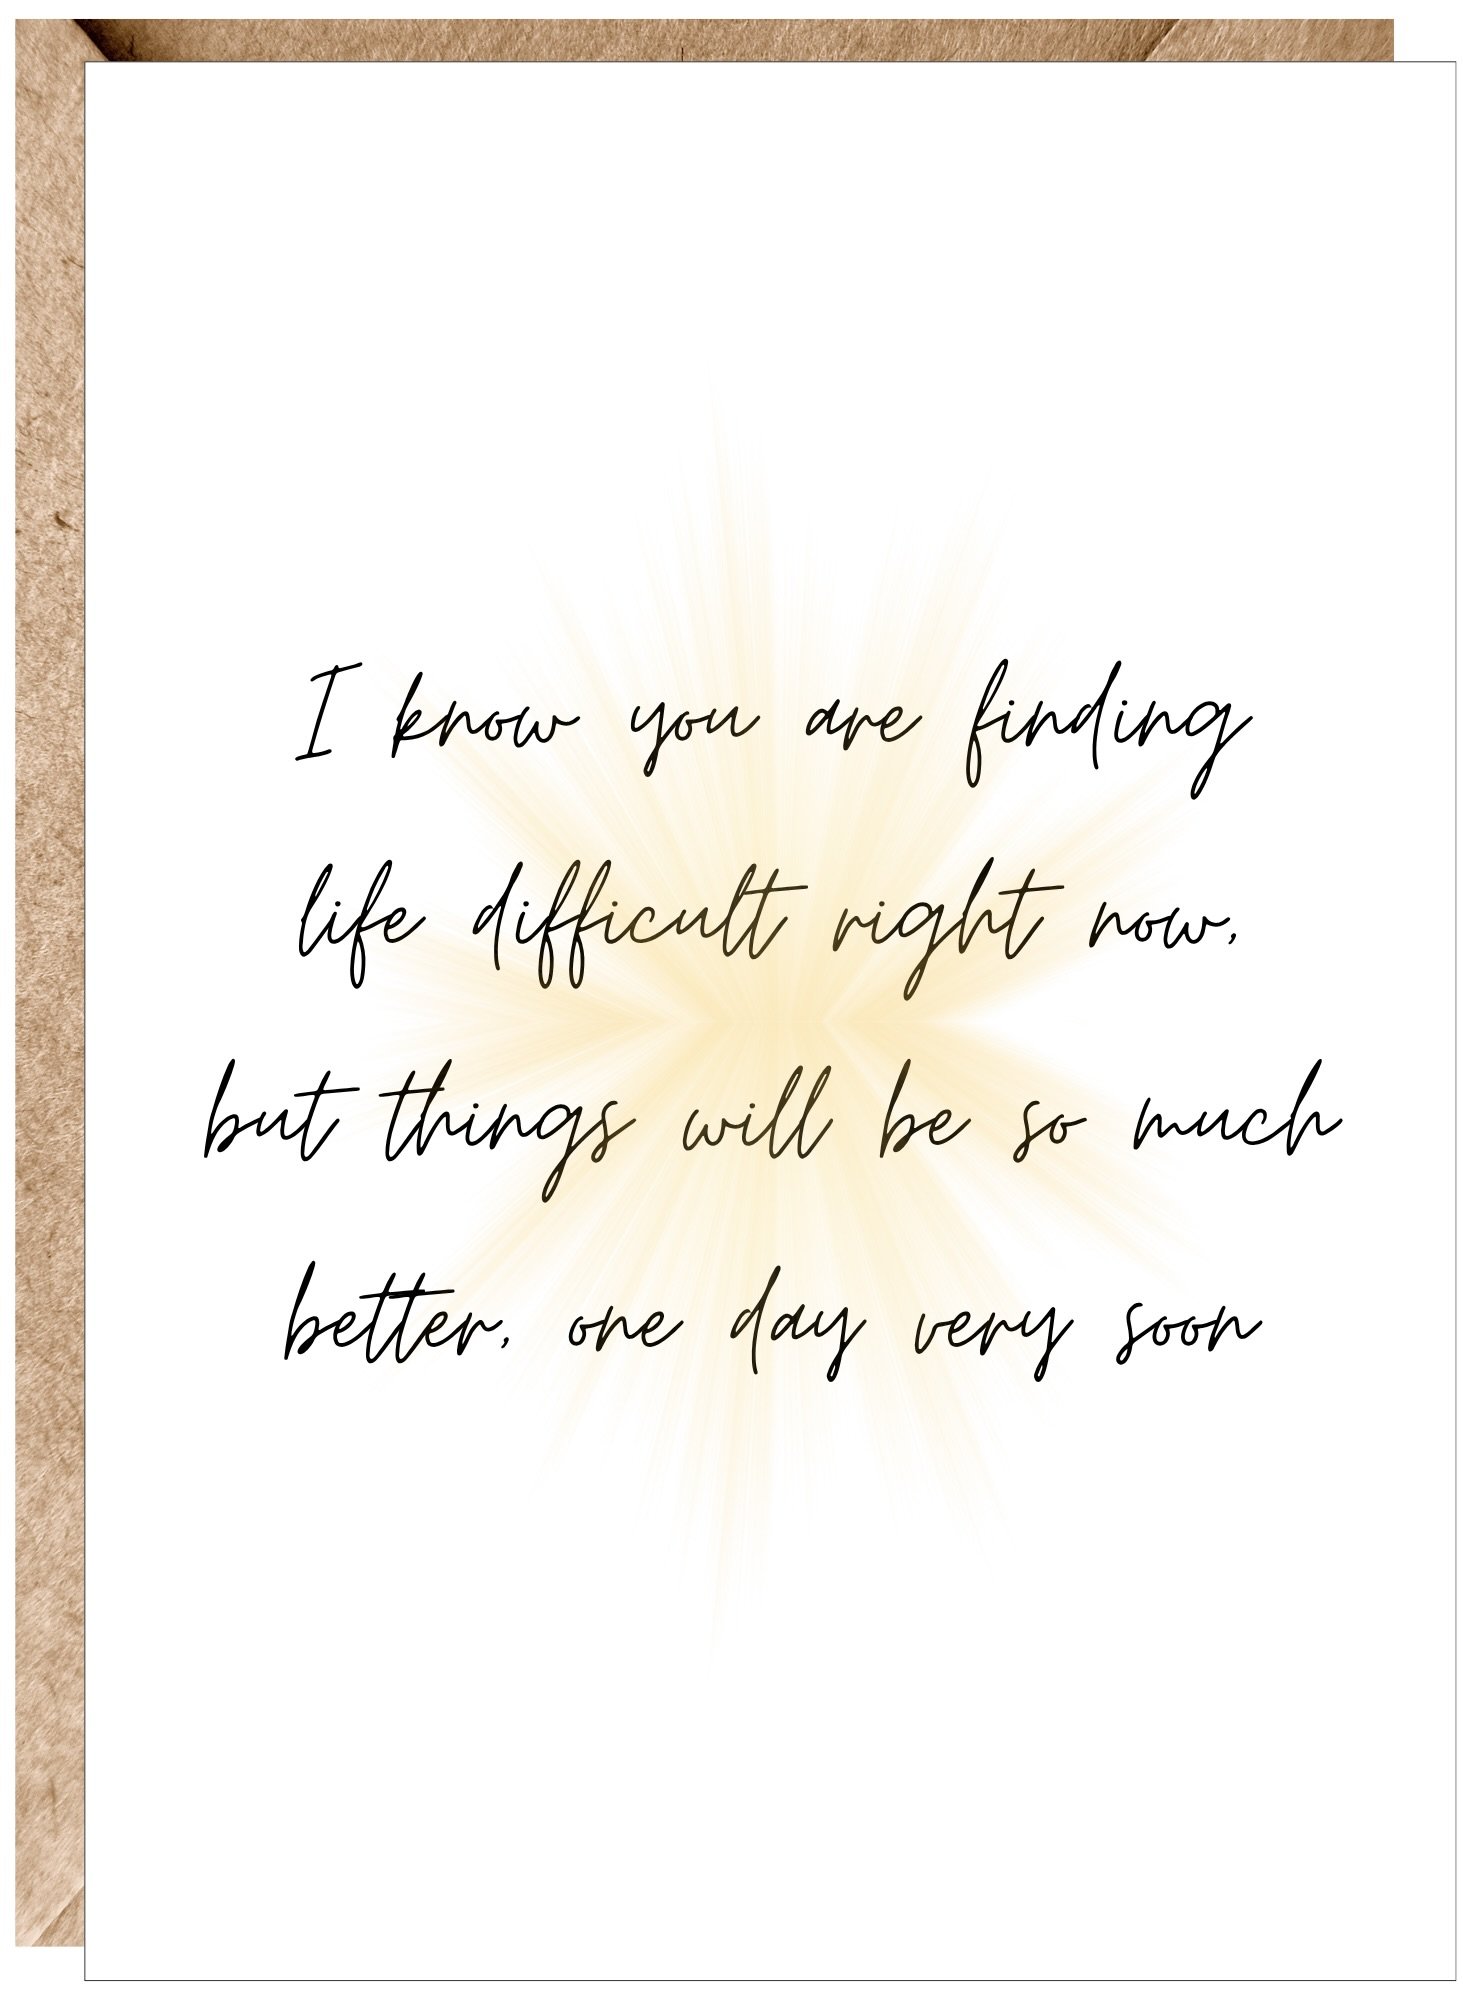 I know you are finding
life difficult right now,
but things will be so much
better, one day very soon